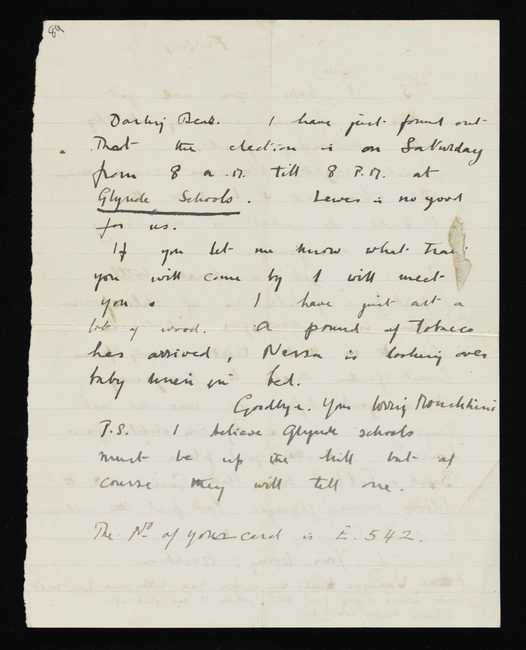 89
Darling Bear. I have just found out
That the election is on Saturday
from 8 a.m. till 8 P.M. at
Glynde Schools. Lewes is no good
for us.
If you let me know what train
you will come by I will meet
you. I have just cut a
lot of wood. A pound of Tobacco
has arrived, Nessa is looking over
baby linen in bed.
Goodbye. Your loving
P.S. I believe Glynde schools
must be up the hill but of
course they will tell one.
The No of your card is E. 542.